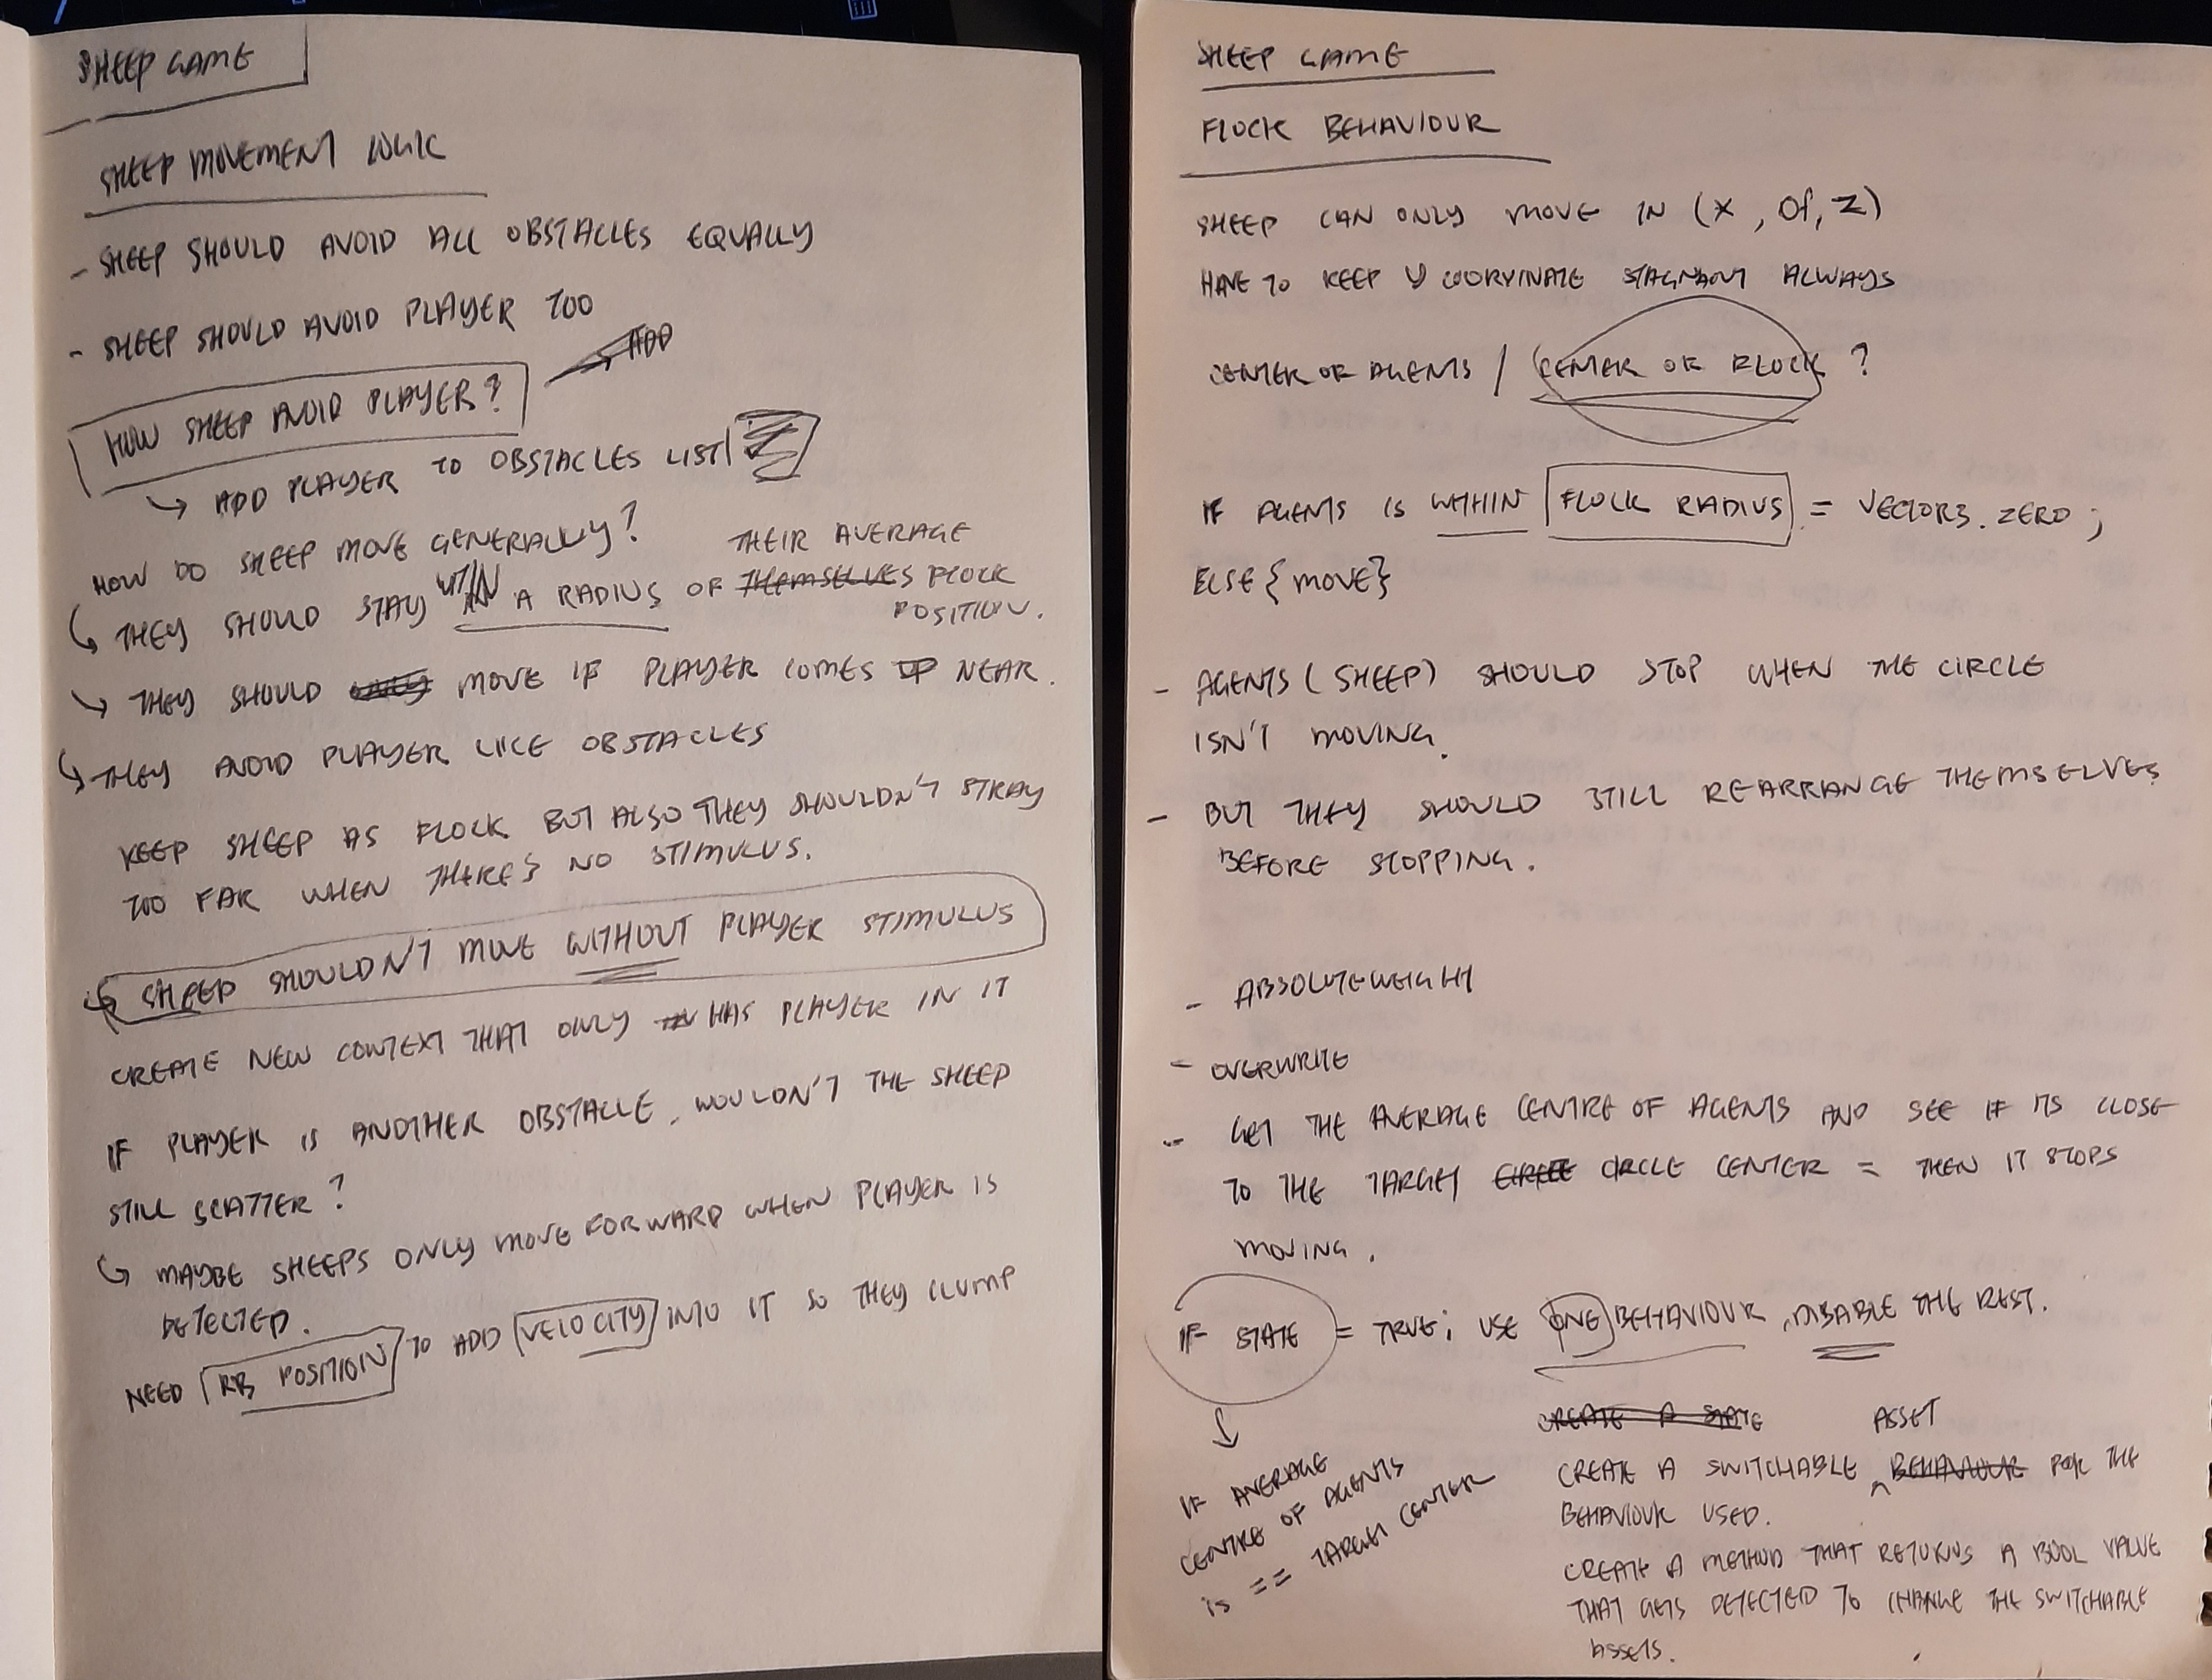 SHEEP GAME
SHEEP MOVEMENT LOGIC
- SHEEP SHOULD AVOID ALL OBSTACLES EQUALLY
- SHEEP SHOULD AVOID PLAYER TOO
ADD
HOW SHEEP AVOID PLAYER?
↳ ADD PLAYER TO OBSTACLES LIST
HOW DO SHEEP MOVE GENERALLY?
THEIR AVERAGE
↳ THEY SHOULD STAY W/IN A RADIUS OF THEMSELVES FLOCK
POSITION.
↳ THEY SHOULD ONLY MOVE IF PLAYER COMES UP NEAR.
↳ THEY AVOID PLAYER LIKE OBSTACLES
KEEP SHEEP AS FLOCK BUT ALSO THEY SHOULDN'T STRAY
TOO FAR WHEN THERE'S NO STIMULUS.
↳ SHEEP SHOULDN'T MOVE WITHOUT PLAYER STIMULUS
CREATE NEW CONTEXT THAT ONLY HAS PLAYER IN IT
IF PLAYER IS ANOTHER OBSTACLE, WOULDN'T THE SHEEP
STILL SCATTER?
↳ MAYBE SHEEPS ONLY MOVE FORWARD WHEN PLAYER IS
DETECTED.
NEED RB POSITION TO ADD VELOCITY INTO IT SO THEY CLUMP
SHEEP GAME
FLOCK BEHAVIOUR
SHEEP CAN ONLY MOVE IN (X, 0f, Z)
HAVE TO KEEP Y COORDINATE STAGNANT ALWAYS
CENTER OF AGENTS / CENTER OF FLOCK?
IF AGENTS IS WITHIN FLOCK RADIUS = VECTOR3.ZERO;
ELSE {MOVE}
- AGENTS (SHEEP) SHOULD STOP WHEN THE CIRCLE
ISN'T MOVING.
- BUT THEY SHOULD STILL REARRANGE THEMSELVES
BEFORE STOPPING.
- ABSOLUTEWEIGHT
- OVERWRITE
- GET THE AVERAGE CENTRE OF AGENTS AND SEE IF ITS CLOSE
TO THE TARGET CIRCLE CIRCLE CENTER = THEN IT STOPS
MOVING.
IF STATE = TRUE; USE ONE BEHAVIOUR, DISABLE THE REST.
↓
IF AVERAGE
CENTRE OF AGENTS
is == TARGET CENTER
CREATE A STATE
ASSET
CREATE A SWITCHABLE ^ BEHAVIOUR FOR THE
BEHAVIOUR USED.
CREATE A METHOD THAT RETURNS A BOOL VALUE
THAT GETS DETECTED TO CHANGE THE SWITCHABLE
ASSETS.